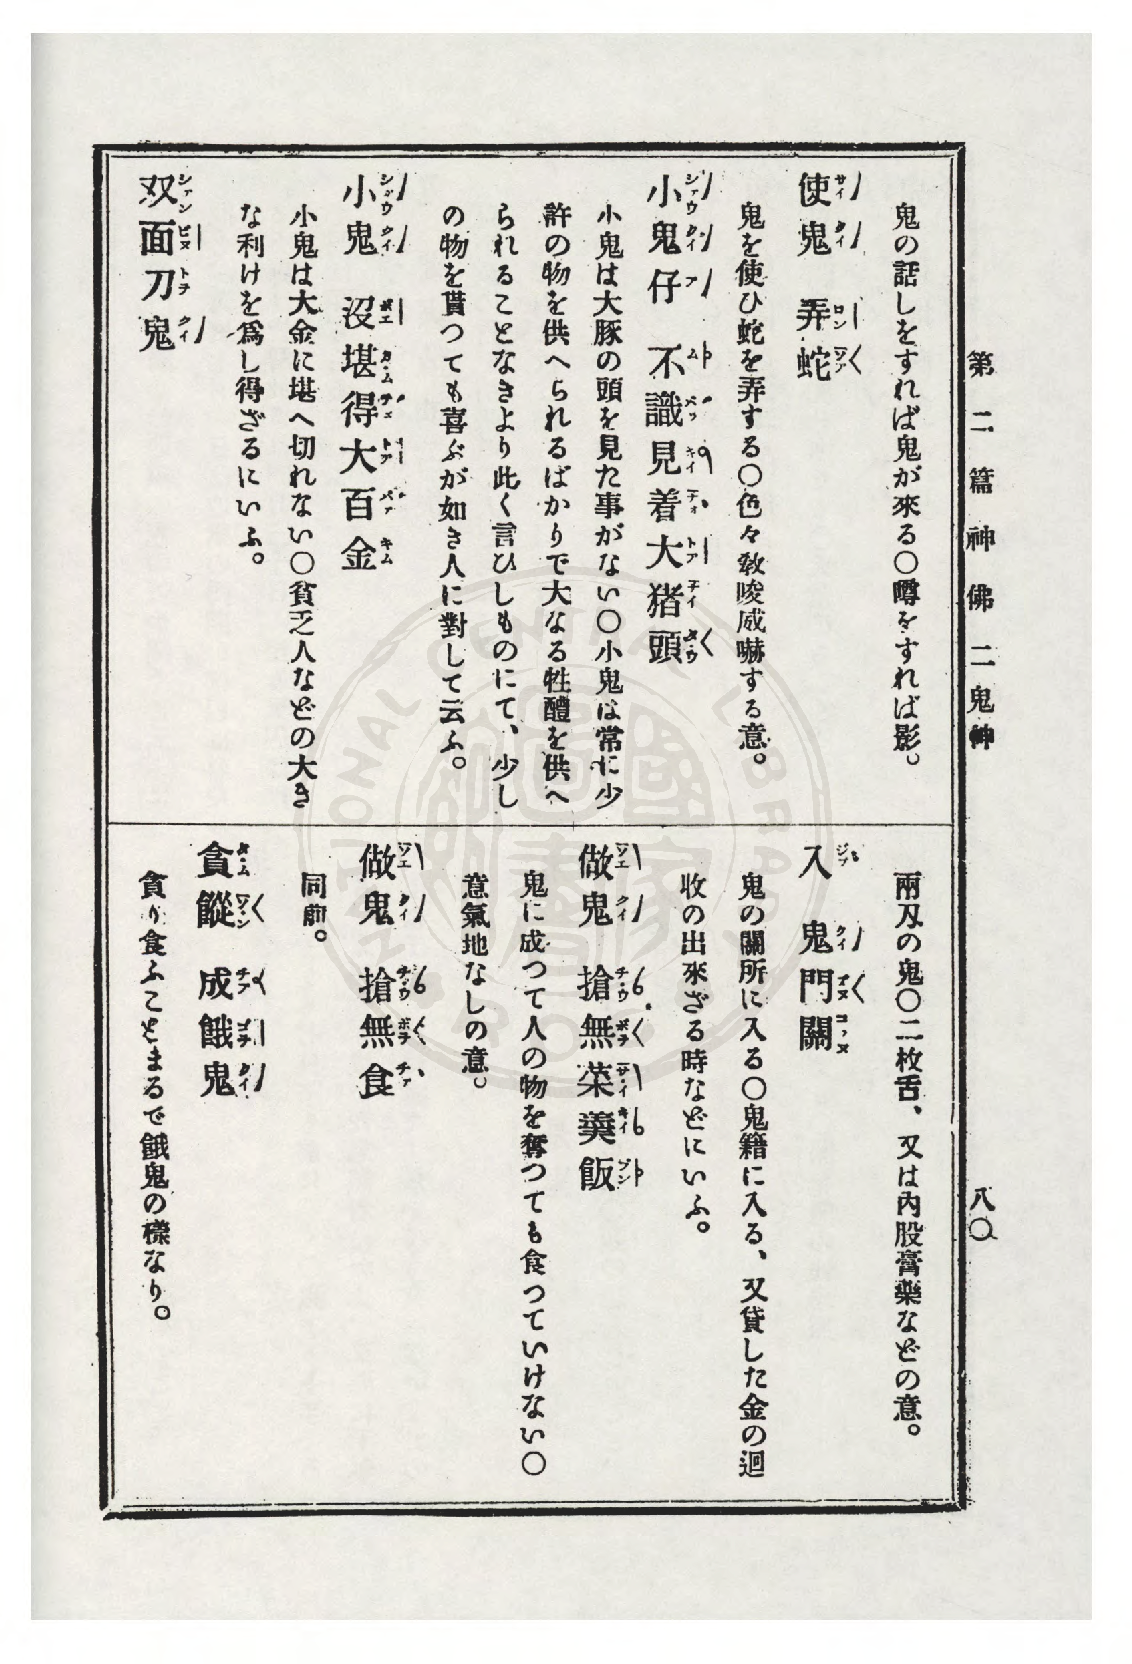 第二篇 神佛 二 鬼神
八〇
鬼の話しをすれば鬼が來る〇噂をすれば影。
使鬼 弄蛇
鬼を使ひ蛇を弄する〇色々敎唆威嚇する意。
小鬼仔 不識見着大猪頭
小鬼は大豚の頭を見た事がない〇小鬼は常に少
許の物を供へられるばかりで大なる牲醴を供へ
られることなきより此く言ひしものにて、少し
の物を貰つても喜ぶが如き人に對して云ふ。
小鬼 沒堪得大百金
小鬼は大金に堪へ切れない〇貧乏人などの大き
な利けを爲し得ざるにいふ。
双面刀鬼
兩刄の鬼〇二枚舌、又は內股膏藥などの意。
入 鬼門關
鬼の關所に入る〇鬼籍に入る、又貸した金の迴
收の出來ざる時などにいふ。
做鬼 搶無菜羹飯
鬼に成つて人の物を奪つても食つていけない〇
意氣地なしの意。
做鬼 搶無食
同前。
貪饞 成餓鬼
貪り食ふことまるで餓鬼の樣なり。
NATIONAL CENTRAL LIBRARY
R.O.C.